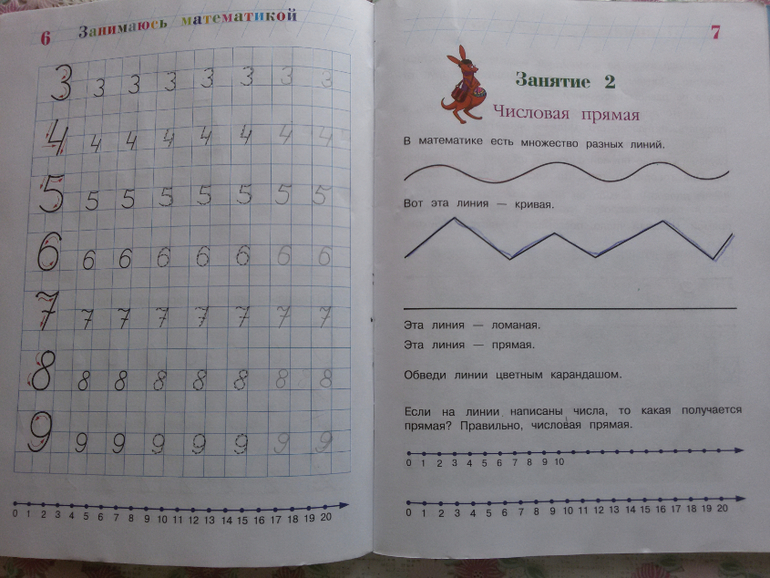 6 Занимаюсь математикой
3 3 3 3 3 3 3 3
4 4 4 4 4 4 4 4
5 5 5 5 5 5 5 5
6 6 6 6 6 6 6 6
7 7 7 7 7 7 7 7
8 8 8 8 8 8 8 8
9 9 9 9 9 9 9 9
0 1 2 3 4 5 6 7 8 9 10 11 12 13 14 15 16 17 18 19 20
7
Занятие 2
Числовая прямая
В математике есть множество разных линий.
Вот эта линия — кривая.
Эта линия — ломаная.
Эта линия — прямая.
Обведи линии цветным карандашом.
Если на линии написаны числа, то какая получается
прямая? Правильно, числовая прямая.
0 1 2 3 4 5 6 7 8 9 10
0 1 2 3 4 5 6 7 8 9 10 11 12 13 14 15 16 17 18 19 20